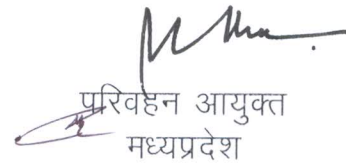 परिवहन आयुक्त
मध्यप्रदेश